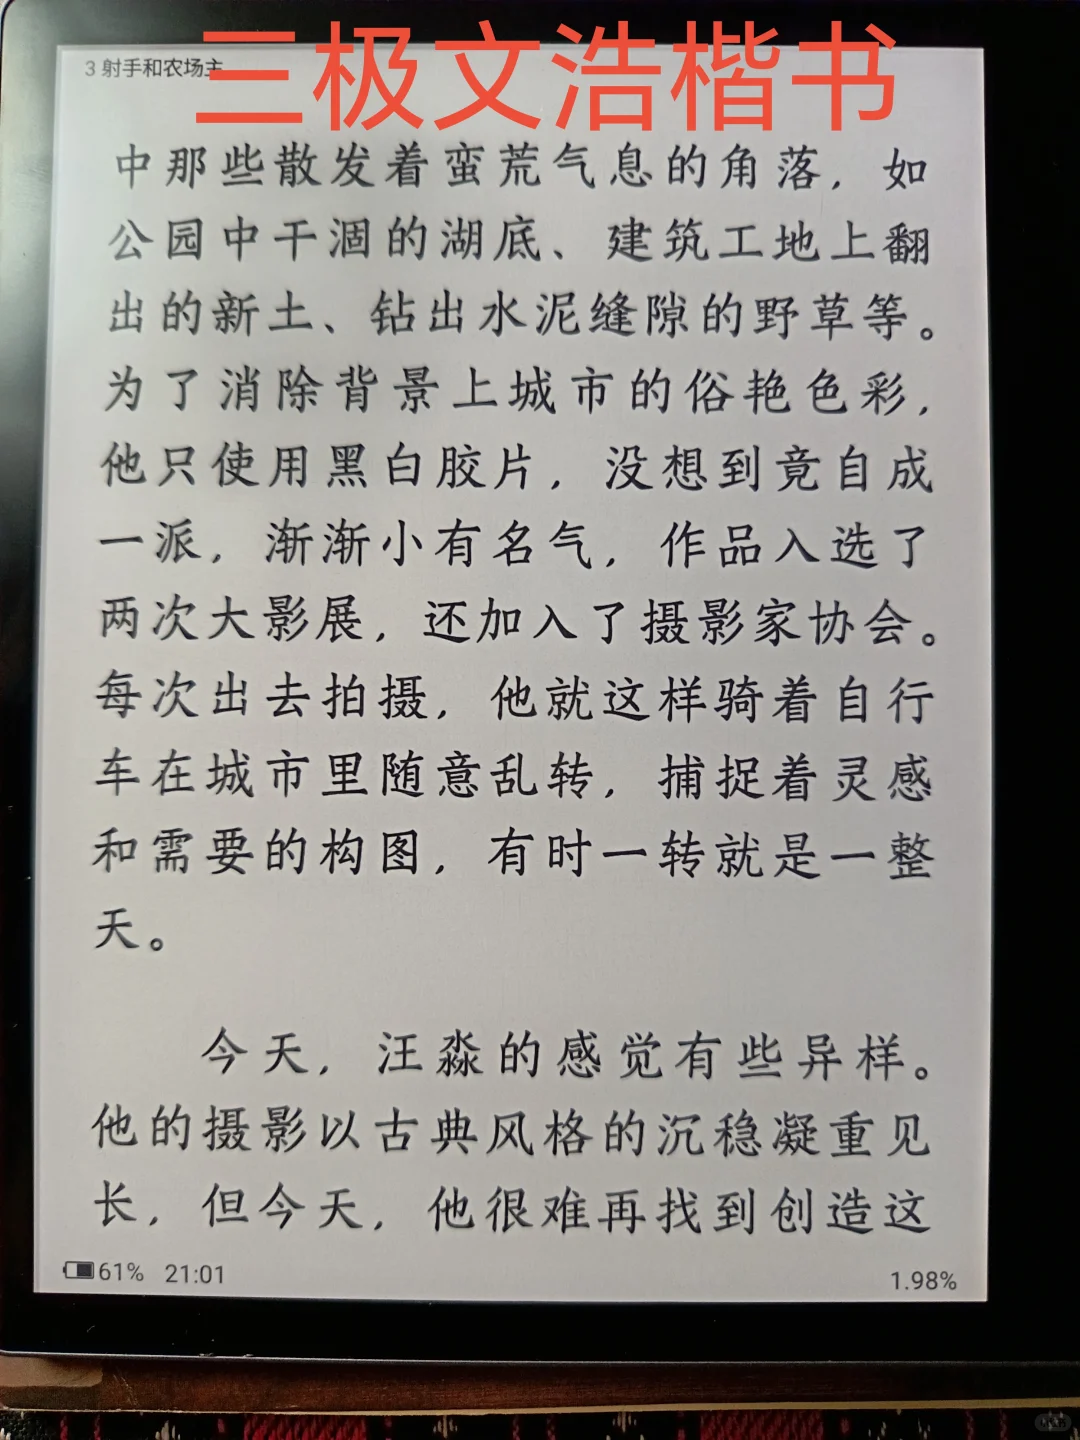 三极文浩楷书
3 射手和农场主
中那些散发着蛮荒气息的角落，如
公园中干涸的湖底、建筑工地上翻
出的新土、钻出水泥缝隙的野草等。
为了消除背景上城市的俗艳色彩，
他只使用黑白胶片，没想到竟自成
一派，渐渐小有名气，作品入选了
两次大影展，还加入了摄影家协会。
每次出去拍摄，他就这样骑着自行
车在城市里随意乱转，捕捉着灵感
和需要的构图，有时一转就是一整
天。
今天，汪淼的感觉有些异样。
他的摄影以古典风格的沉稳凝重见
长，但今天，他很难再找到创造这
61% 21:01
1.98%